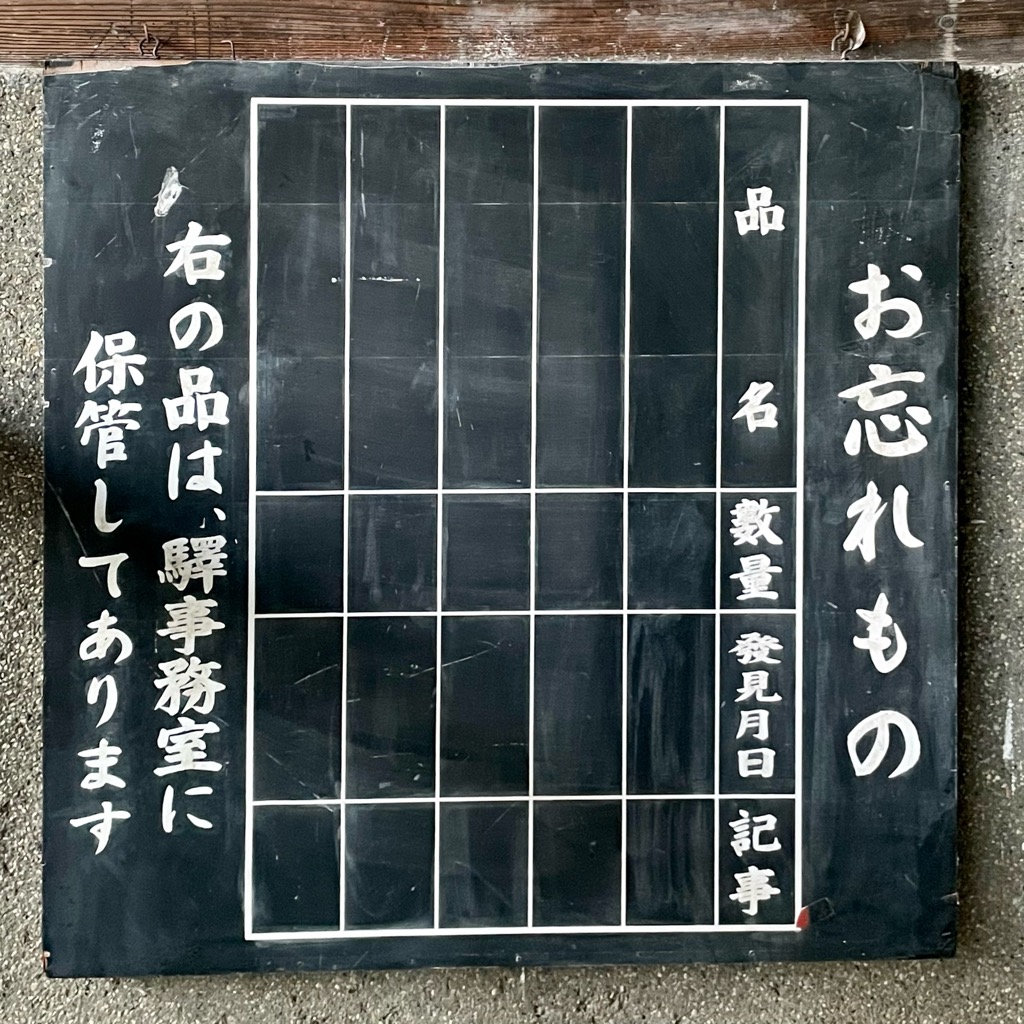 お忘れもの
品名
數量
發見月日
記事
右の品は、驛事務室に
保管してあります